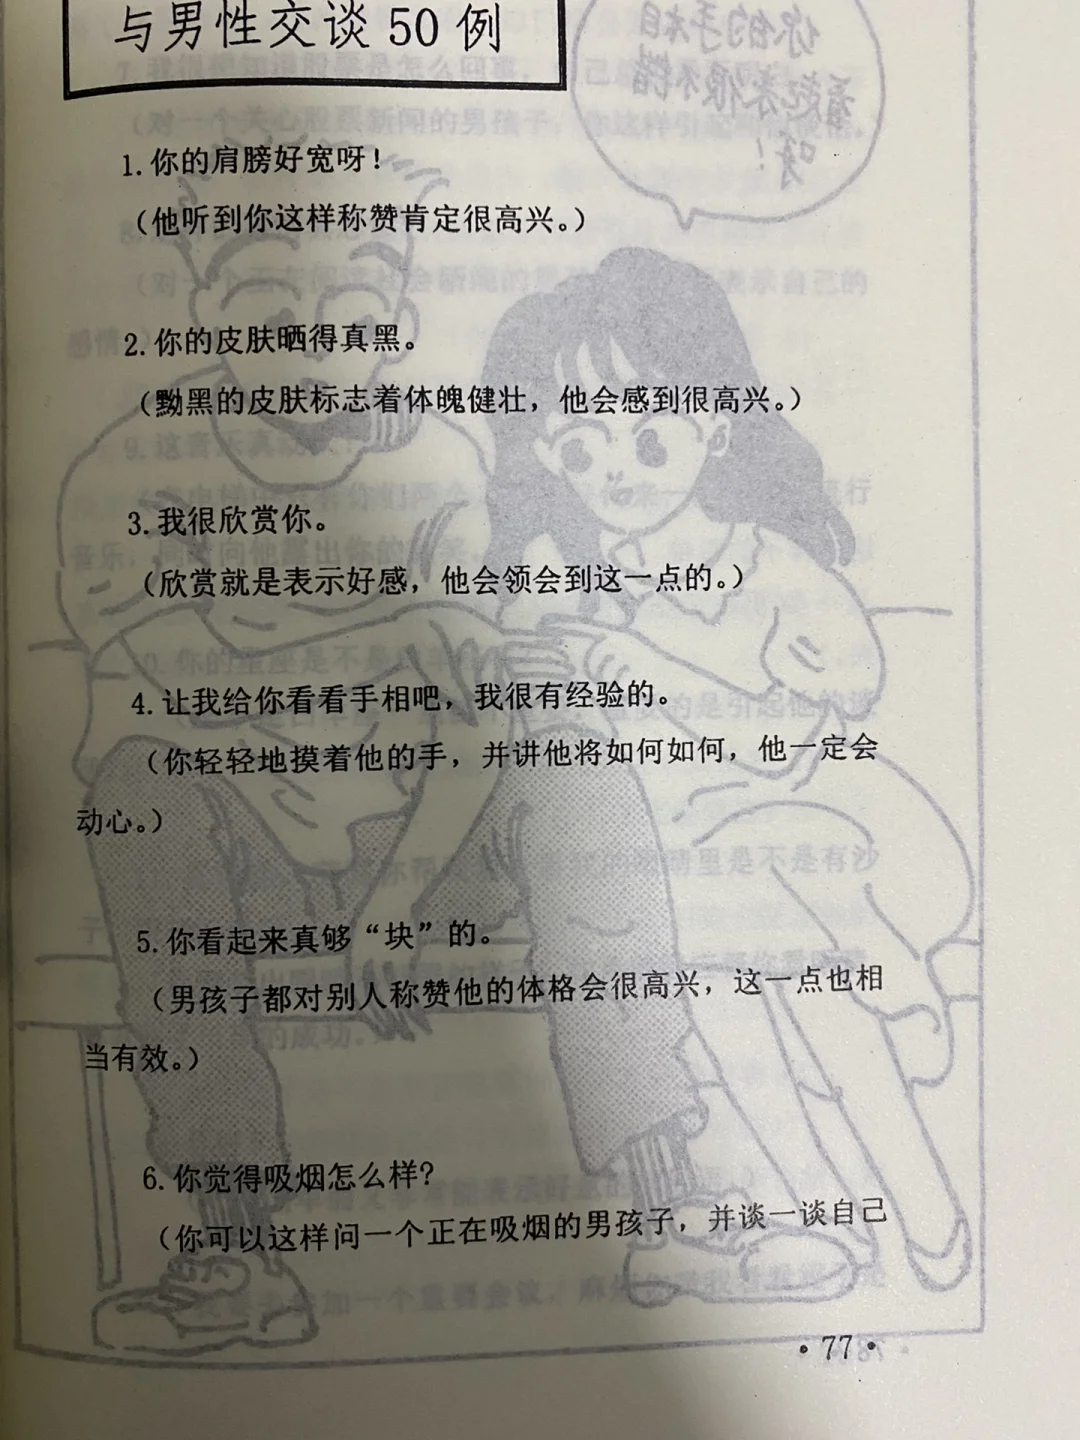 与男性交谈50例
1.你的肩膀好宽呀！
（他听到你这样称赞肯定很高兴。）
2.你的皮肤晒得真黑。
（黝黑的皮肤标志着体魄健壮，他会感到很高兴。）
3.我很欣赏你。
（欣赏就是表示好感，他会领会到这一点的。）
4.让我给你看看手相吧，我很有经验的。
（你轻轻地摸着他的手，并讲他将如何如何，他一定会
动心。）
5.你看起来真够“块”的。
（男孩子都对别人称赞他的体格会很高兴，这一点也相
当有效。）
6.你觉得吸烟怎么样?
（你可以这样问一个正在吸烟的男孩子，并谈一谈自己
•77•